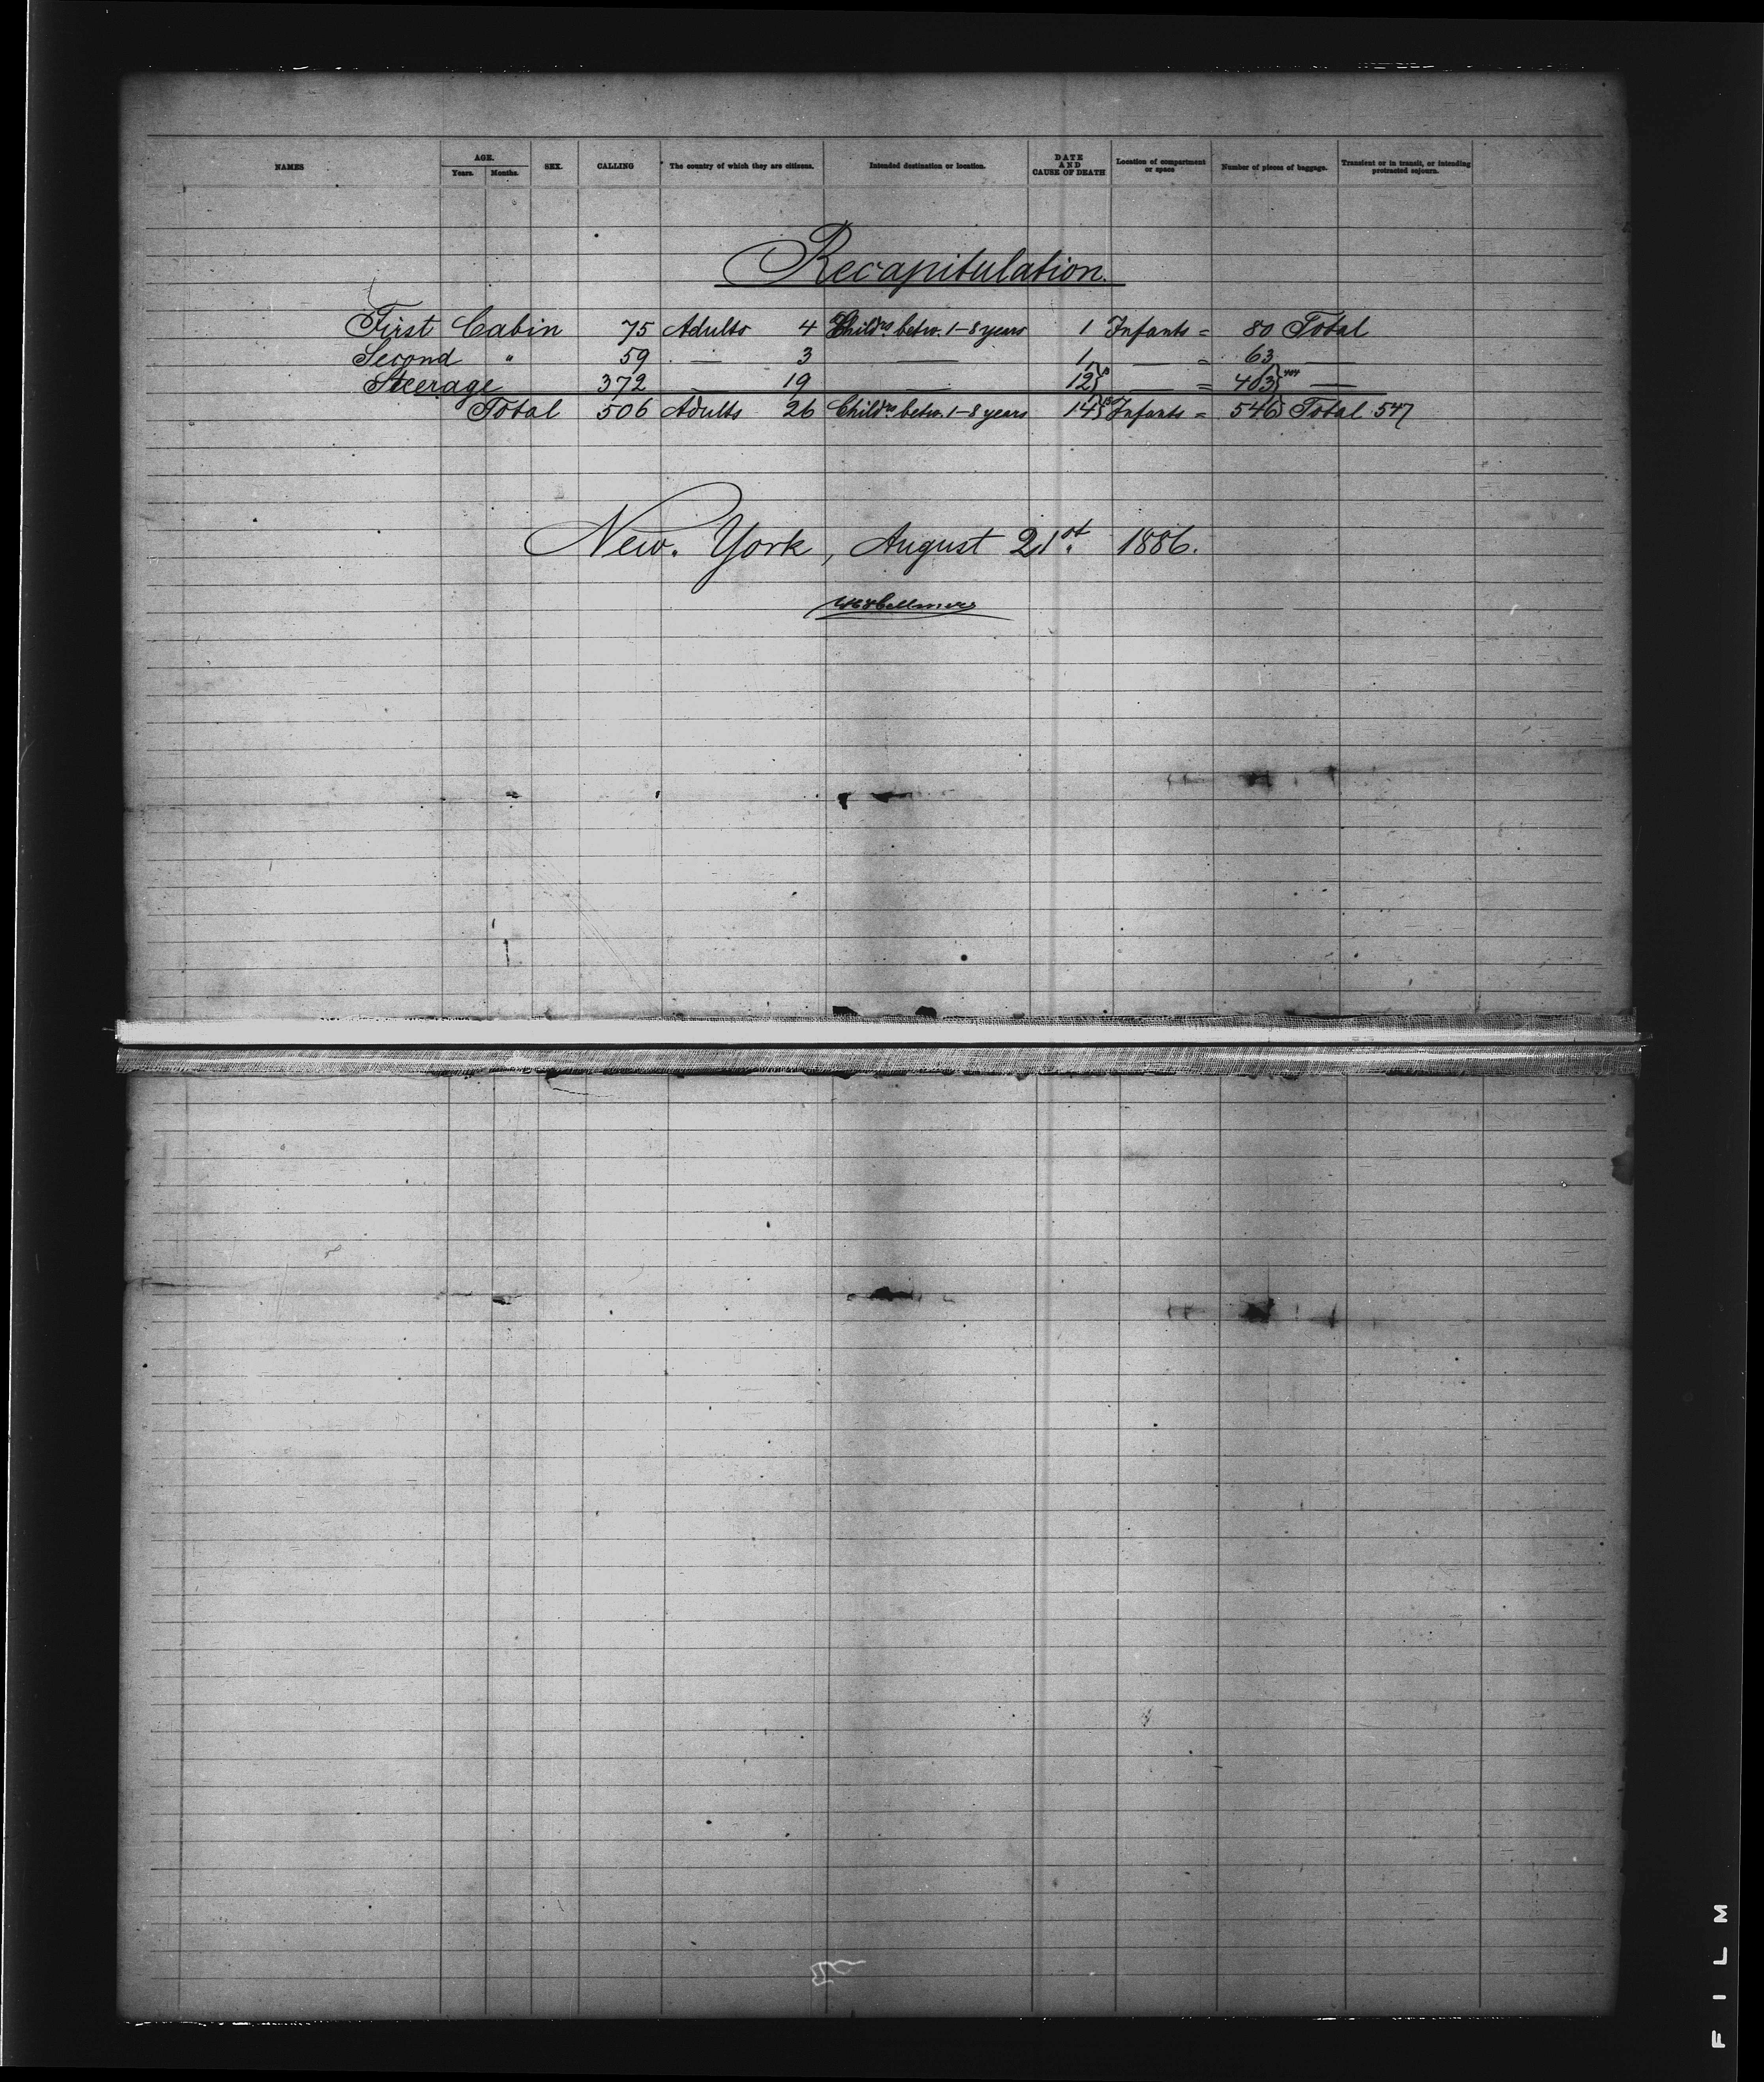 NAMES AGE. SEX. CALLING The country of which they are citizens. Intended destination or location. DATE AND CAUSE OF DEATH Location of compartment or space Number of pieces of baggage. Transient or in transit, or intending protracted sojourn.
Years. Months.
Recapitulation.
First Cabin 75 Adults 4 Childrn betw. 1-8 years 1 Infants = 80 Total
Second " 59 — 3 — 1 — = 63 —
Steerage 372 — 19 — 12 13 — = 403 404 —
Total 506 Adults 26 Childrn betw. 1-8 years 14 15 Infants = 546 Total 547
New. York, August 21st. 1886.
FILM